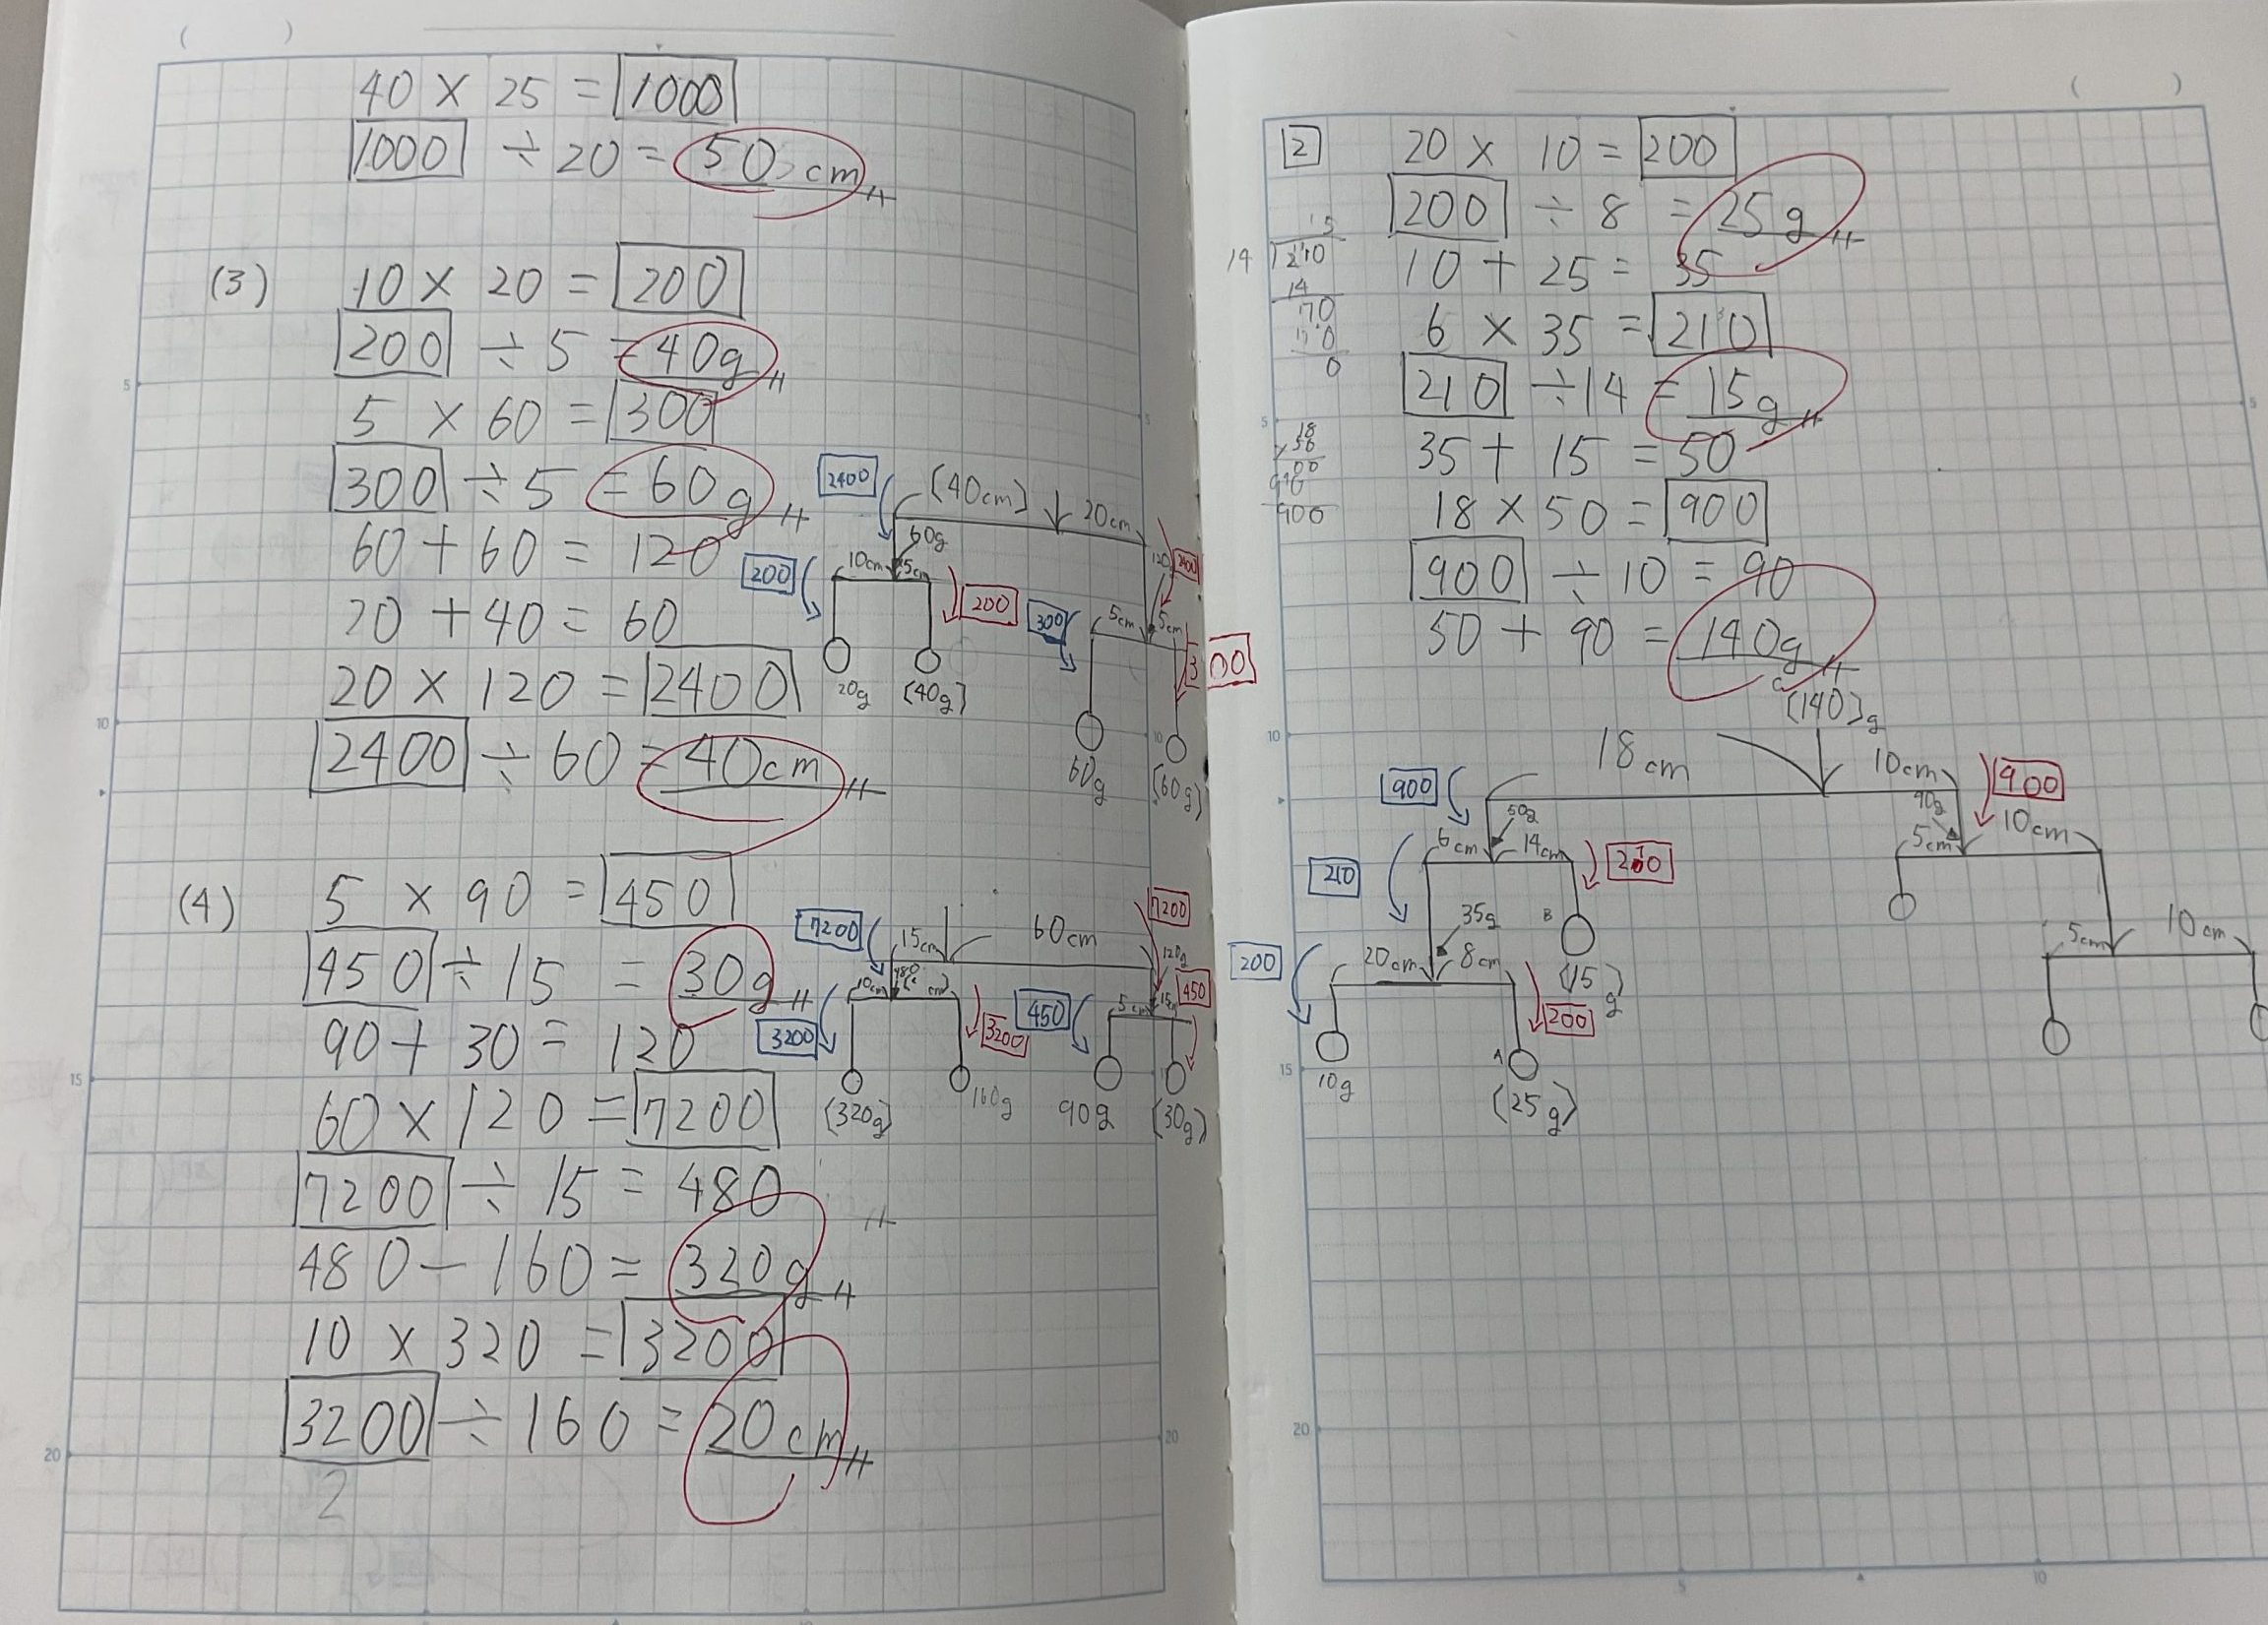 40 × 25 = 1000
1000 ÷ 20 = 50cm
(3) 10 × 20 = 200
200 ÷ 5 = 40g
5 × 60 = 300
300 ÷ 5 = 60g
60 + 60 = 120
20 + 40 = 60
20 × 120 = 2400
2400 ÷ 60 = 40cm
2400 (40cm) 20cm
60g
120 2400
200 10cm 5cm 200
300 5cm 5cm 300
20g (40g)
60g (60g)
(4) 5 × 90 = 450
450 ÷ 15 = 30g
90 + 30 = 120
60 × 120 = 7200
7200 ÷ 15 = 480
480 - 160 = 320g
10 × 320 = 3200
3200 ÷ 160 = 20cm
2
7200 15cm 60cm 7200
120g
10cm 480 cm)
3200 3200 450 5cm 15cm 450
(320g) 160g 90g (30g)
5
10
15
20
2 20 × 10 = 200
200 ÷ 8 = 25g
10 + 25 = 35
6 × 35 = 210
210 ÷ 14 = 15g
35 + 15 = 50
18 × 50 = 900
900 ÷ 10 = 90
50 + 90 = 140g
15
14 210
14
70
70
0
18
× 50
00
90
900
(140)g
900 18cm 10cm 900
50g 90g
210 6cm 14cm 210 5cm 10cm
35g B
200 20cm 8cm (15g) 5cm 10cm
200
10g A (25g)
5
10
15
20
5
10